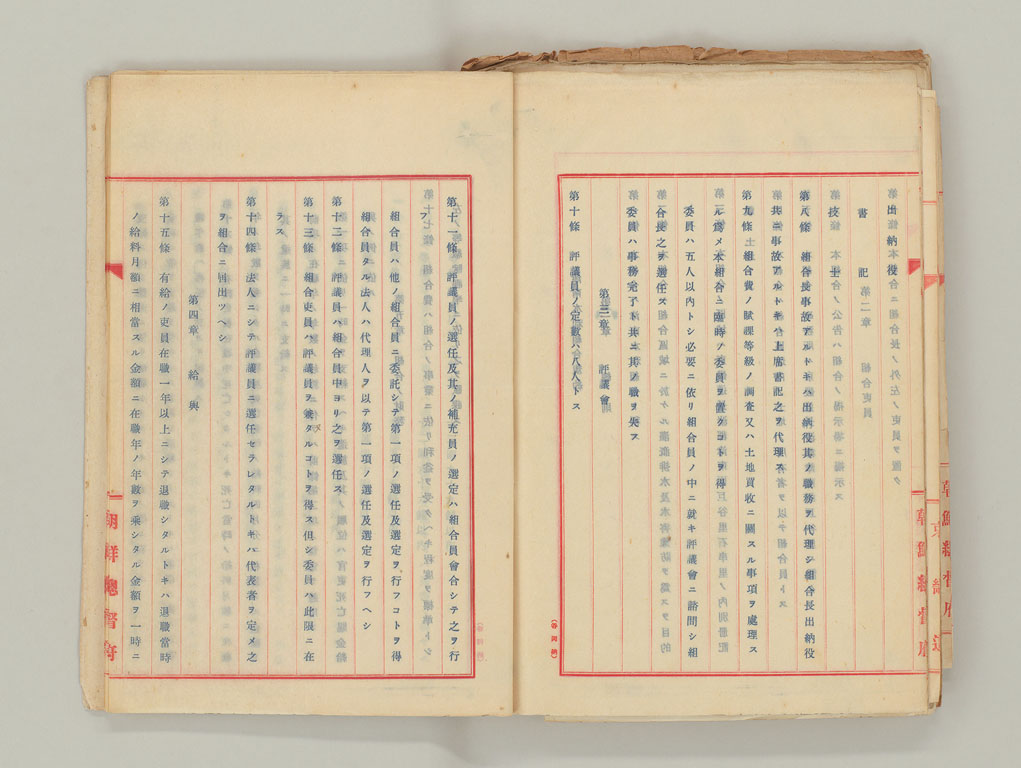 出納役
書記
技士
第八條 組合長事故アルトキハ出納役其ノ職務ヲ代理シ組合長出納役
共ニ事故アルトキハ上席書記之ヲ代理ス
第九條 土組合費ノ賦課等級ノ調査又ハ土地買收ニ關スル事項ヲ處理ス
ル爲メ本組合ニ臨時ノ委員ヲ置クコトヲ得
委員ハ五人以内トシ必要ニ依リ組合員ノ中ニ就キ評議會ニ諮問シ組
合長之ヲ選任ス
委員ハ事務完了ト共ニ其ノ職ヲ失ス
第三章 評議會
第十條 評議員ノ定數ハ八人トス
第十一條 評議員ノ選任及其ノ補充員ノ選定ハ組合員會合シテ之ヲ行
フ
組合員ハ他ノ組合員ニ委託シテ第一項ノ選任及選定ヲ行フコトヲ得
組合員タル法人ハ代理人ヲ以テ第一項ノ選任及選定ヲ行フヘシ
第十二條 評議員ハ組合員中ヨリ之ヲ選任ス
第十三條 組合吏員ハ評議員ヲ兼タルコトヲ得ス但シ委員ハ此限ニ在
ラス
第十四條 法人ニシテ評議員ニ選任セラレタルトキハ代表者ヲ定メ之
ヲ組合ニ回出ツヘシ
第四章 給與
第十五條 有給ノ吏員在職一年以上ニシテ退職シタルトキハ退職當時
ノ給料月額ニ相當スル金額ニ在職年ノ年數ヲ乘シタル金額ヲ一時ニ
朝鮮總督府